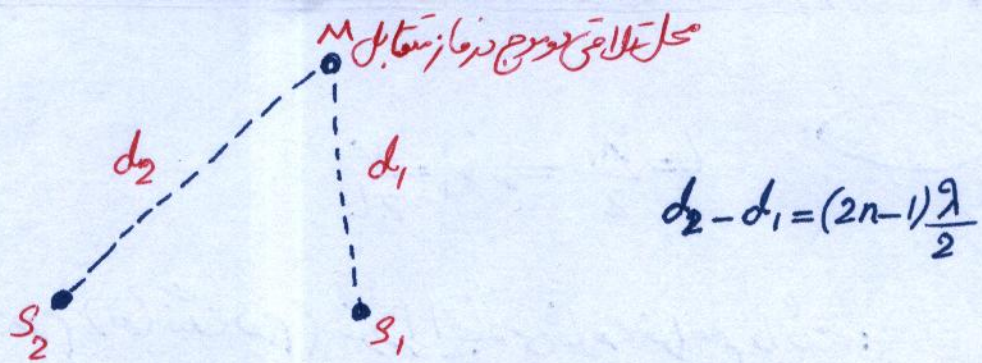 M محل تلاقی دو موج در فاز متقابل
d₂
d₁
d₂ - d₁ = (2n-1) λ/2
S₂
S₁